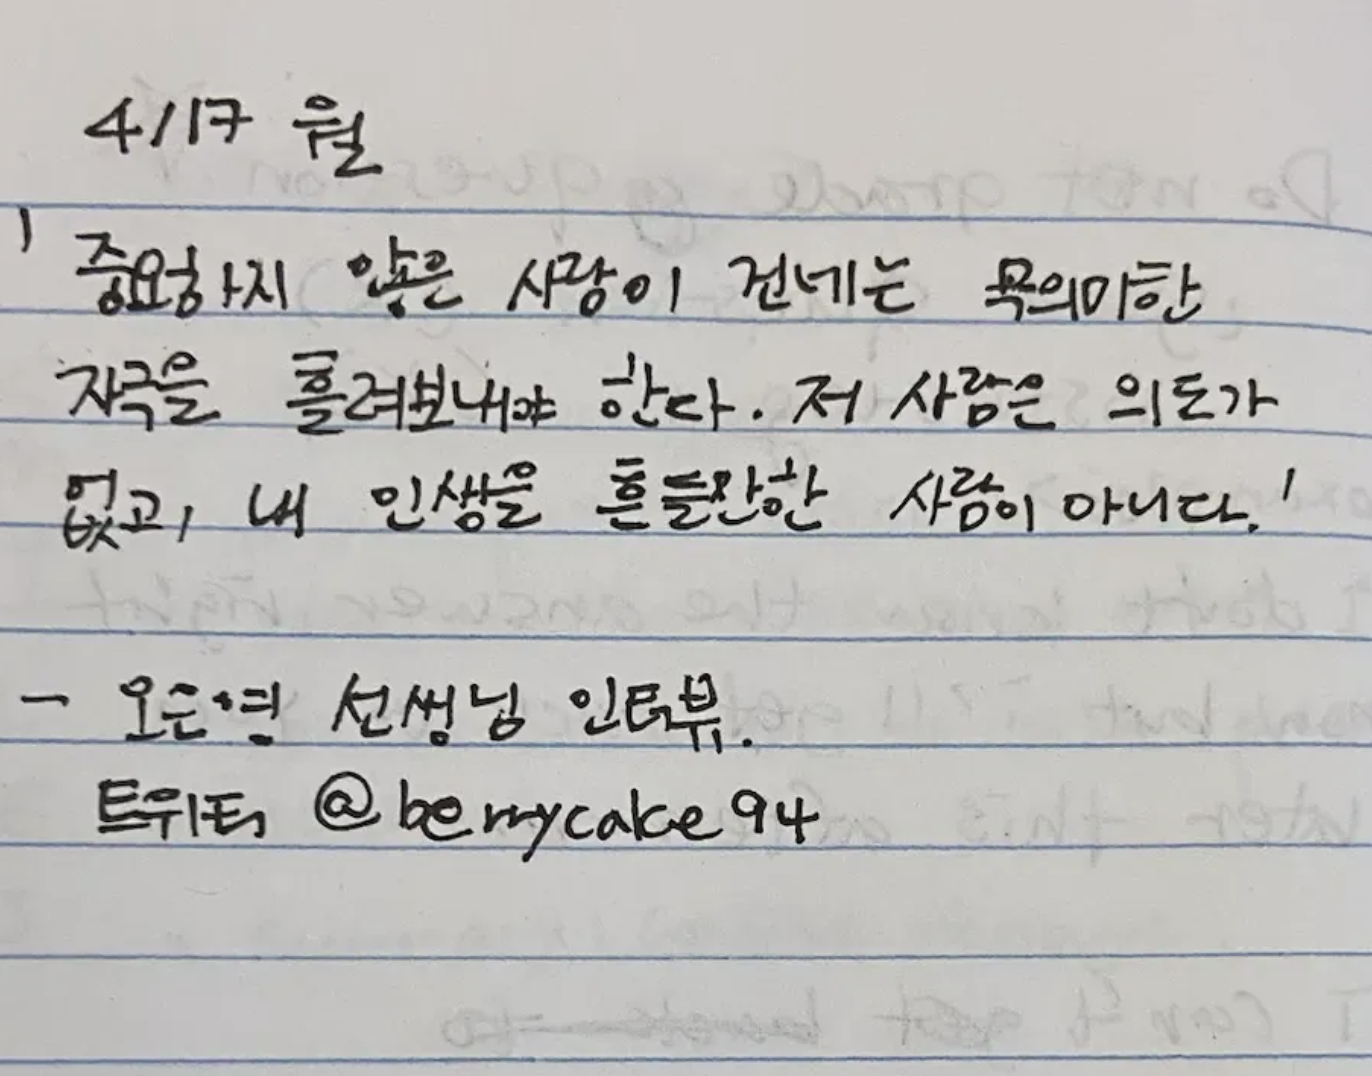 4/17 월
' 중요하지 않은 사람이 건네는 무의미한
자극을 흘려보내야 한다. 저 사람은 의도가
없고, 내 인생을 흔들만한 사람이 아니다.'
- 오은영 선생님 인터뷰.
트위터 @bemycake94